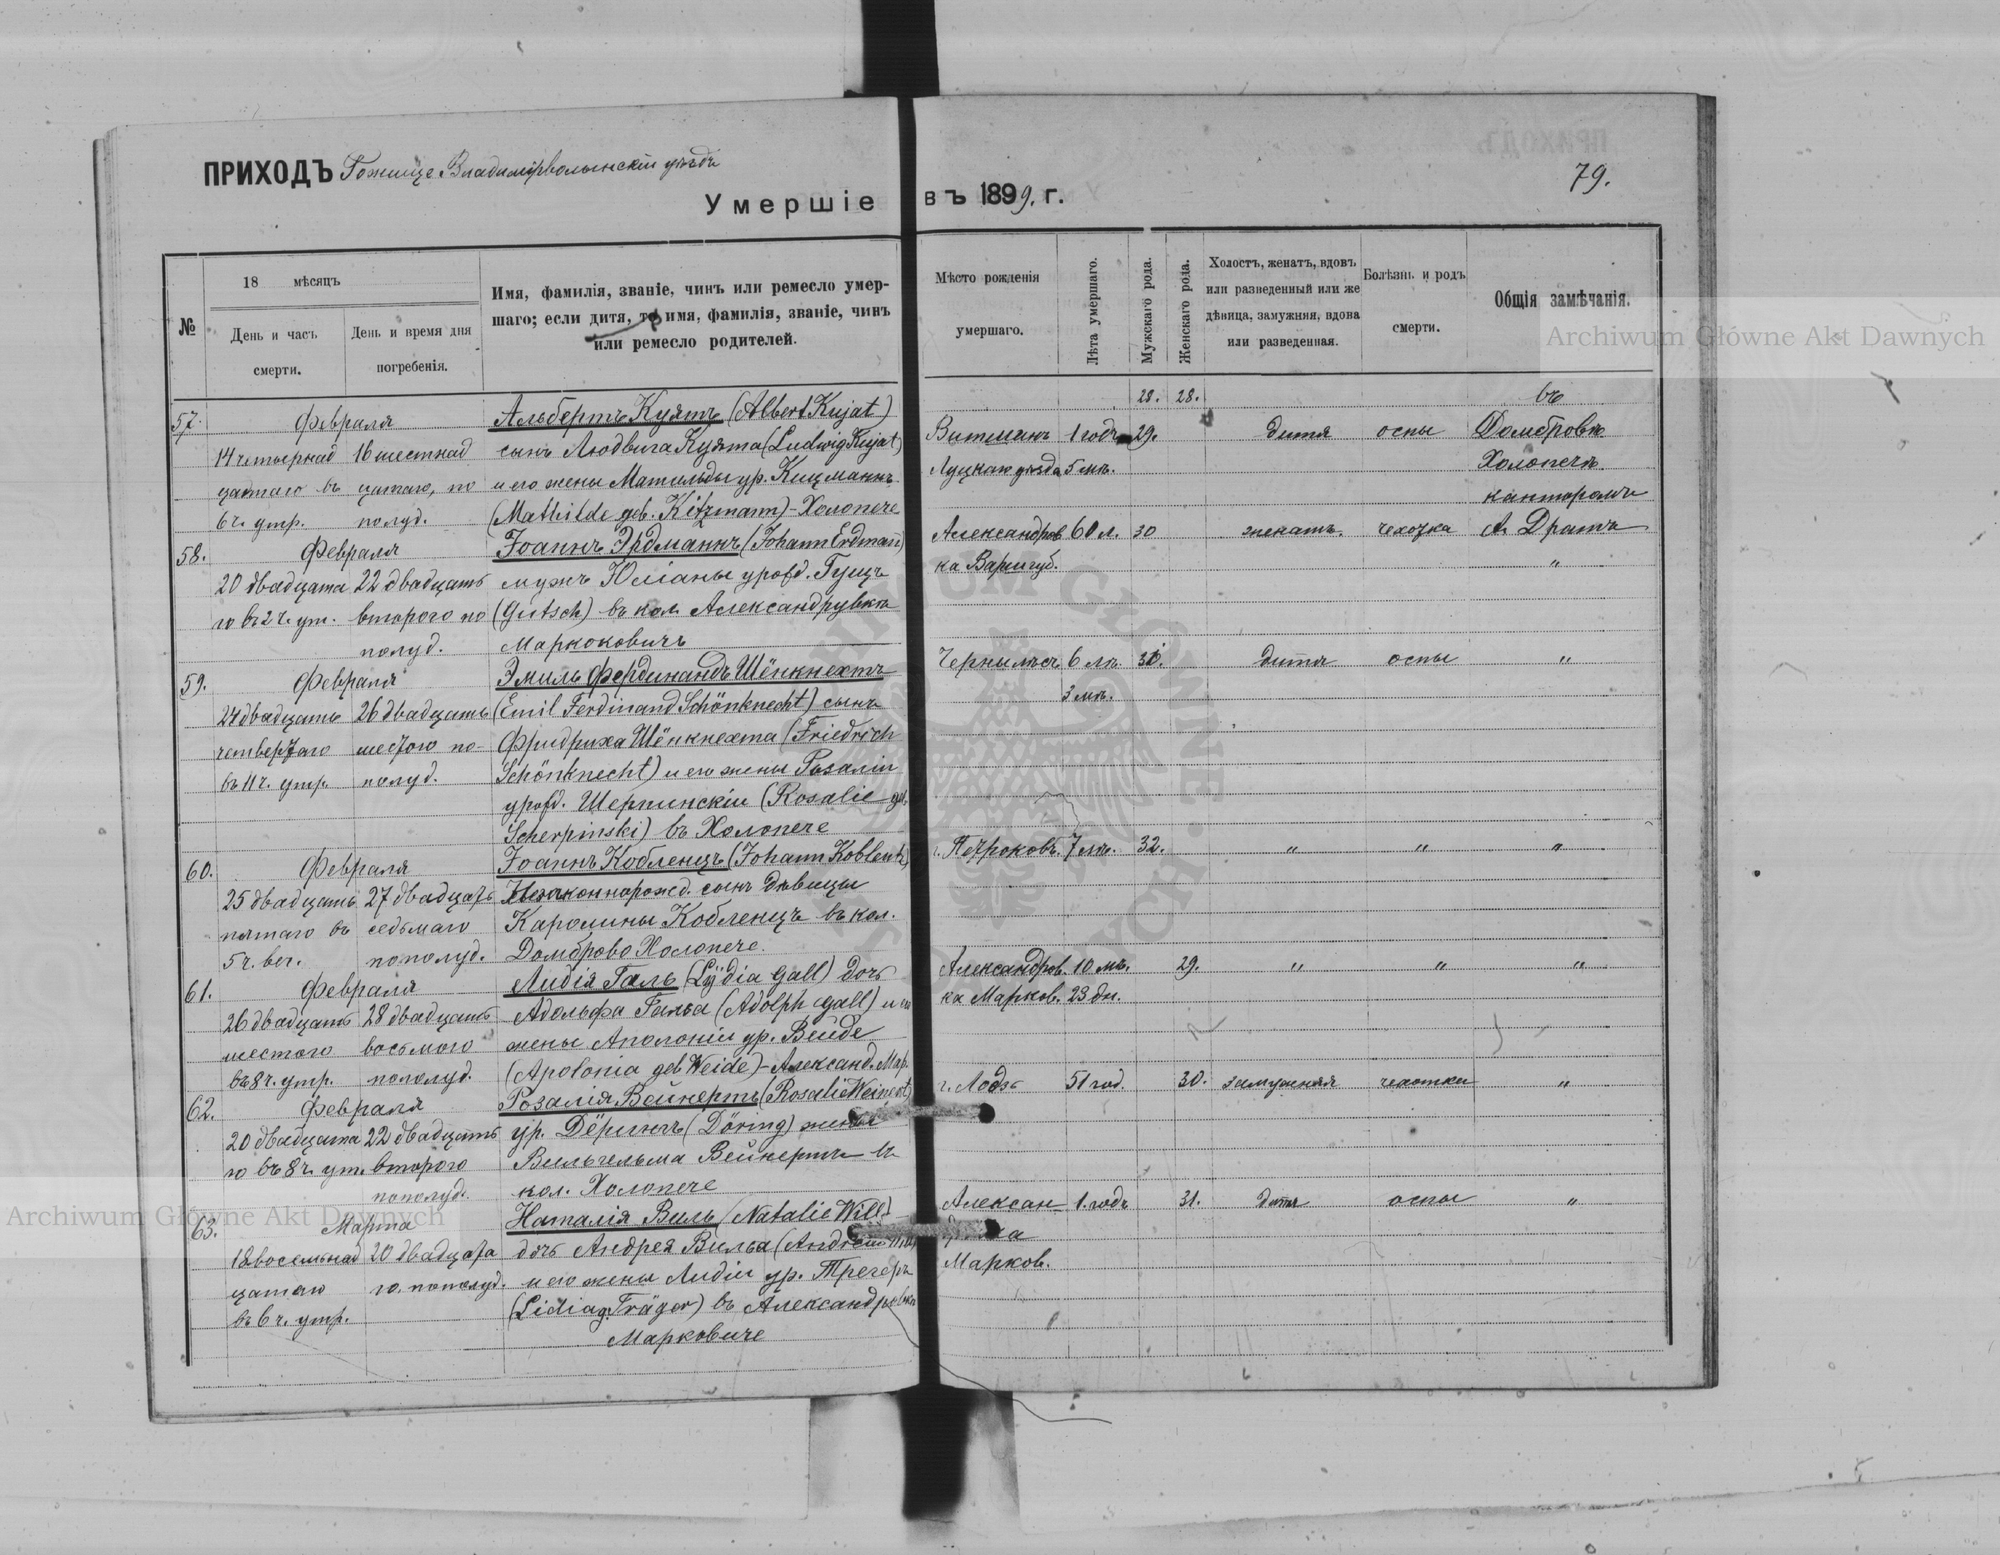 ПРИХОДЪ Рожище Владимірволынскій уѣздъ
79.
Умершіе въ 1899. г.
№
18 мѣсяцъ
День и часъ смерти.
День и время дня погребенія.
Имя, фамилія, званіе, чинъ или ремесло умер-
шаго; если дитя, то имя, фамилія, званіе, чинъ
или ремесло родителей.
Мѣсто рожденія
умершаго.
Лѣта умершаго.
Мужскаго рода.
Женскаго рода.
Холостъ, женатъ, вдовъ
или разведенный или же
дѣвица, замужняя, вдова
или разведенная.
Болѣзнь и родъ
смерти.
Общія замѣчанія.
28. 28. въ
57. Февраля Альбертъ Куятъ (Albert Kujat)
Витманъ 1 годъ 29. дитя оспы Домбровк
14 четырнад 16 шестнад сынъ Людвига Куята (Ludwig Kujat)
Луцкаго уѣзда 5 мѣ. Холопечя
цатаго въ цатаго, по и его жены Матильды ур. Кицманнъ
канторомъ
6 ч. утр. полуд. (Mathilde geb. Kitzmann) - Холопече
58. Февраля Іоаннъ Эрдманнъ (Johann Erdmann)
Александров 60 л. 30 женатъ. чехотка А. Драть
20 двадцата 22 двадцать мужъ Юліаны урожд. Гуцъ
ка Варш губ. "
го въ 2 ч. ут. второго по (Gutsch) въ кол. Александрувкѣ
полуд. Маркоковичъ
59. Февраля Эмиль Фердинандъ Шёнкнехтъ
Чернылѣсъ 6 лѣ. 31. дитя оспы "
24 двадцать 26 двадцать (Emil Ferdinand Schönknecht) сынъ
3 мѣ.
четвертаго шестого по- Фридриха Шёнкнехта (Friedrich
въ 11 ч. утр. полуд. Schönknecht) и его жены Розаліи
урожд. Шерпинскіи (Rosalie geb.
Scherpinski) въ Холопече
60. Февраля Іоаннъ Кобленцъ (Johann Koblentz)
г. Петроковъ. 7 мѣ. 32. " " "
25 двадцать 27 двадцать Незаконнорожд. сынъ дѣвицы
пятаго въ седьмаго Каролины Кобленцъ въ кол.
5 ч. веч. пополуд. Домброво Холопече.
61. Февраля Лидія Галь (Lÿdia Gall) дочь
Александров. 10 мѣ. 29. " " "
26 двадцать 28 двадцать Адольфа Галья (Adolph Gall) и его
ка Марков. 23 дн.
шестого восьмого жены Аполоніи ур. Вейде
въ 8 ч. утр. пополуд. (Apolonia geb Weide) - Александ. Мар.
62. Февраля Розалія Вейнертъ (Rosalie Weinert)
г. Лодзь 51 год. 30. замужняя чехотки "
20 двадцата 22 двадцать ур. Дёрингъ (Döring) жена
го въ 8 ч. ут. второго Вильгельма Вейнертъ въ
пополуд. кол. Холопече
63. Марта Наталія Виль (Natalie Will)
Алексан 1. годъ 31. дитя оспы "
18 восемьнад 20 двадцата дочь Андрея Вилья
цатаго го. пополуд. и его жены Лидіи ур. Трегеръ
Марков.
въ 6 ч. утр. (Lidia g. Träger) въ Александровкѣ
Марковиче
Archiwum Główne Akt Dawnych
Archiwum Główne Akt Dawnych